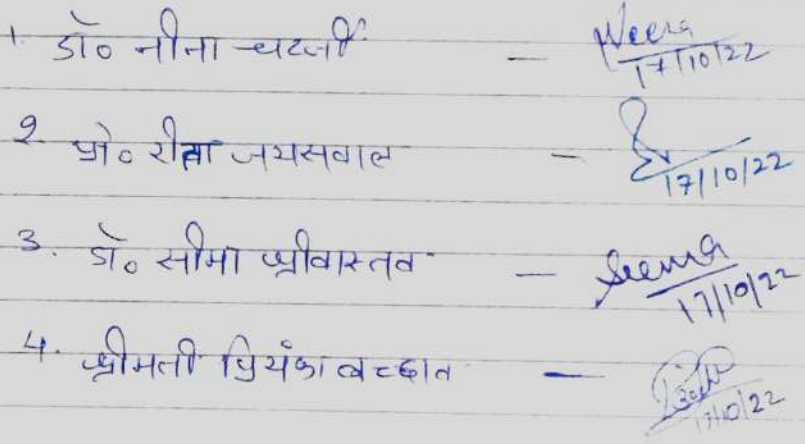 1. डॉ० नीना चटर्जी - Neena 17/10/22
2 प्रो० रीता जयसवाल - 17/10/22
3. डॉ० सीमा श्रीवास्तव - Seema 17/10/22
4. श्रीमती प्रियंका - 17/10/22